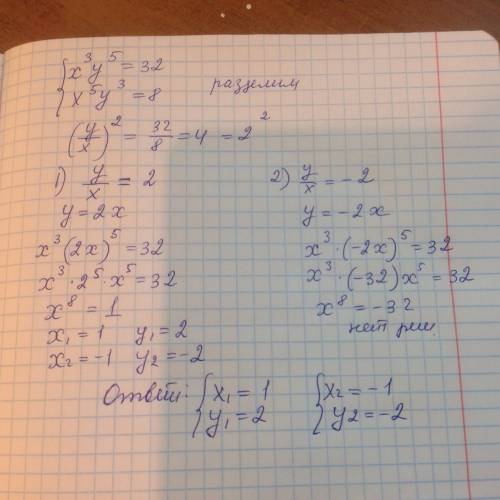 { x³y⁵ = 32
x⁵y³ = 8 разделим
(y/x)² = 32/8 = 4 = 2²
1) y/x = 2
y = 2x
x³(2x)⁵ = 32
x³ · 2⁵ · x⁵ = 32
x⁸ = 1
x₁ = 1 y₁ = 2
x₂ = -1 y₂ = -2
2) y/x = -2
y = -2x
x³ · (-2x)⁵ = 32
x³ · (-32)x⁵ = 32
x⁸ = -32
нет реш.
Ответ: { x₁ = 1 { x₂ = -1
y₁ = 2 y2 = -2